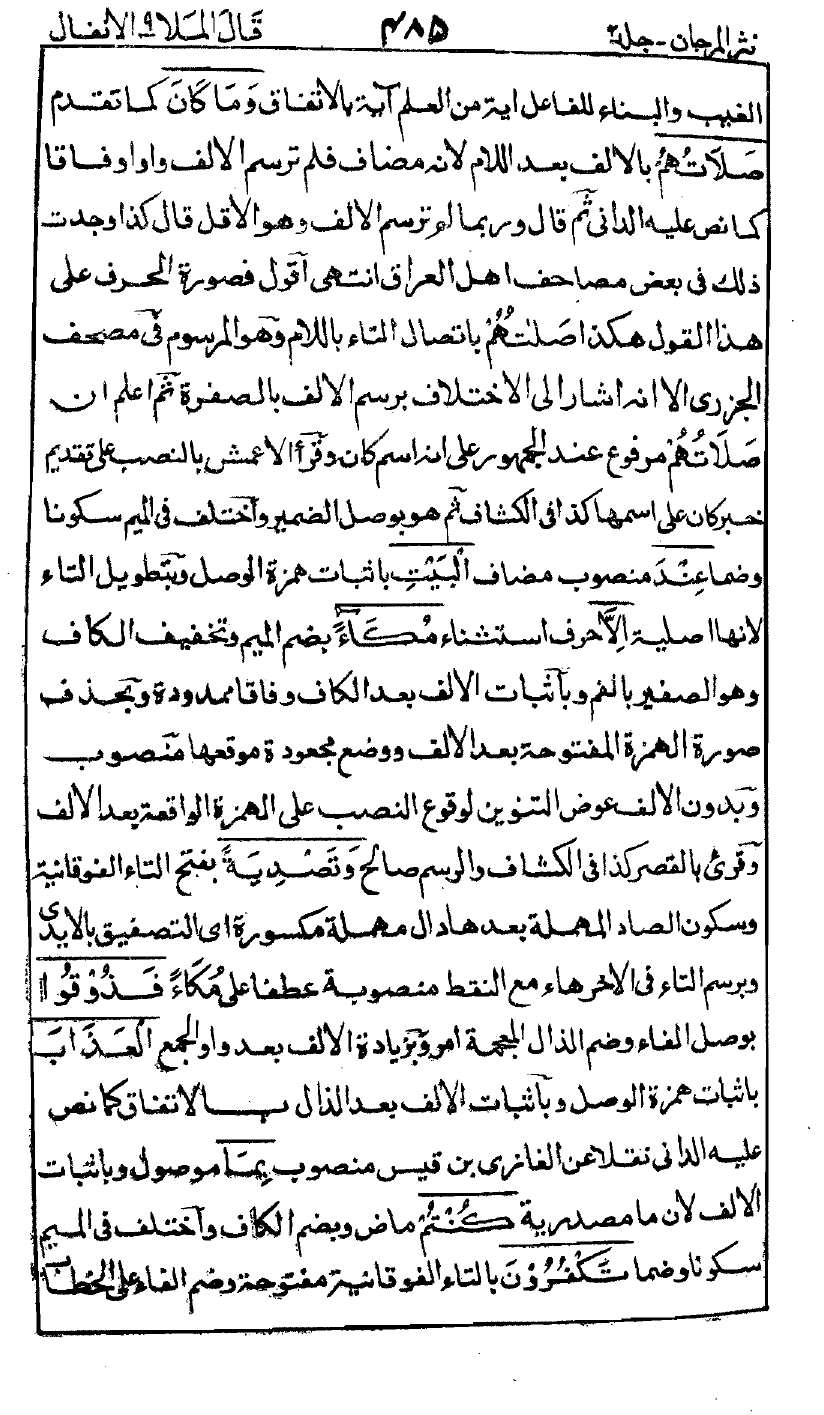 نثر المرجان - جلد ٢ ٤٨٥ قَالَ الْمَلَا ٩ الأنفال
الغيب والبناء للفاعل اية من العلم آية بالاتفاق وَمَا كَانَ كما تقدم
صَلَاتُهُمْ بالالف بعد اللام لانه مضاف فلم ترسم الالف واوا وفاقا
كما نص عليه الدانى ثم قال وربما لم ترسم الالف وهو الاقل قال كذا وجدت
ذلك فى بعض مصاحف اهل العراق انتهى أقول فصورة الحرف على
هذا القول هكذا صَلٰتُهُمْ باتصال التاء باللام وهو المرسوم فى مصحف
الجزرى الا انه اشار الى الاختلاف برسم الالف بالصفرة ثم اعلم ان
صَلَاتُهُمْ مرفوع عند الجمهور على انه اسم كان وقرأ الاعمش بالنصب على تقديم
خبر كان على اسمها كذا فى الكشاف ثم هو بوصل الضمير واختلف فى الميم سكونا
وضما عِنْدَ منصوب مضاف الْبَيْتِ باثبات همزة الوصل وبتطويل التاء
لانها اصلية اِلَّا حرف استثناء مُكَاءً بضم الميم وتخفيف الكاف
وهو الصفير بالفم وباثبات الالف بعد الكاف وفاقا ممدودة وبحذف
صورة الهمزة المفتوحة بعد الالف ووضع مجعودة موقعها منصوب
وبدون الالف عوض التنوين لوقوع النصب على الهمزة الواقعة بعد الالف
وقرئ بالقصر كذا فى الكشاف والرسم صالح وَتَصْدِيَةً بفتح التاء الفوقانية
وسكون الصاد المهملة بعدها دال مهملة مكسورة اى التصفيق بالايدى
وبرسم التاء فى الاخر هاء مع النقط منصوبة عطفا على مُكَاءً فَذُوْقُوا
بوصل الفاء وضم الذال المعجمة امر وبزيادة الالف بعد واو الجمع الْعَذَابَ
باثبات همزة الوصل وباثبات الالف بعد الذال بالاتفاق كما نص
عليه الدانى نقلا عن الغازى بن قيس منصوب بِمَا موصول وباثبات
الالف لان ما مصدرية كُنْتُمْ ماض وبضم الكاف واختلف فى الميم
سكونا وضما تَكْفُرُوْنَ بالتاء الفوقانية مفتوحة وضم الفاء على الخطاب